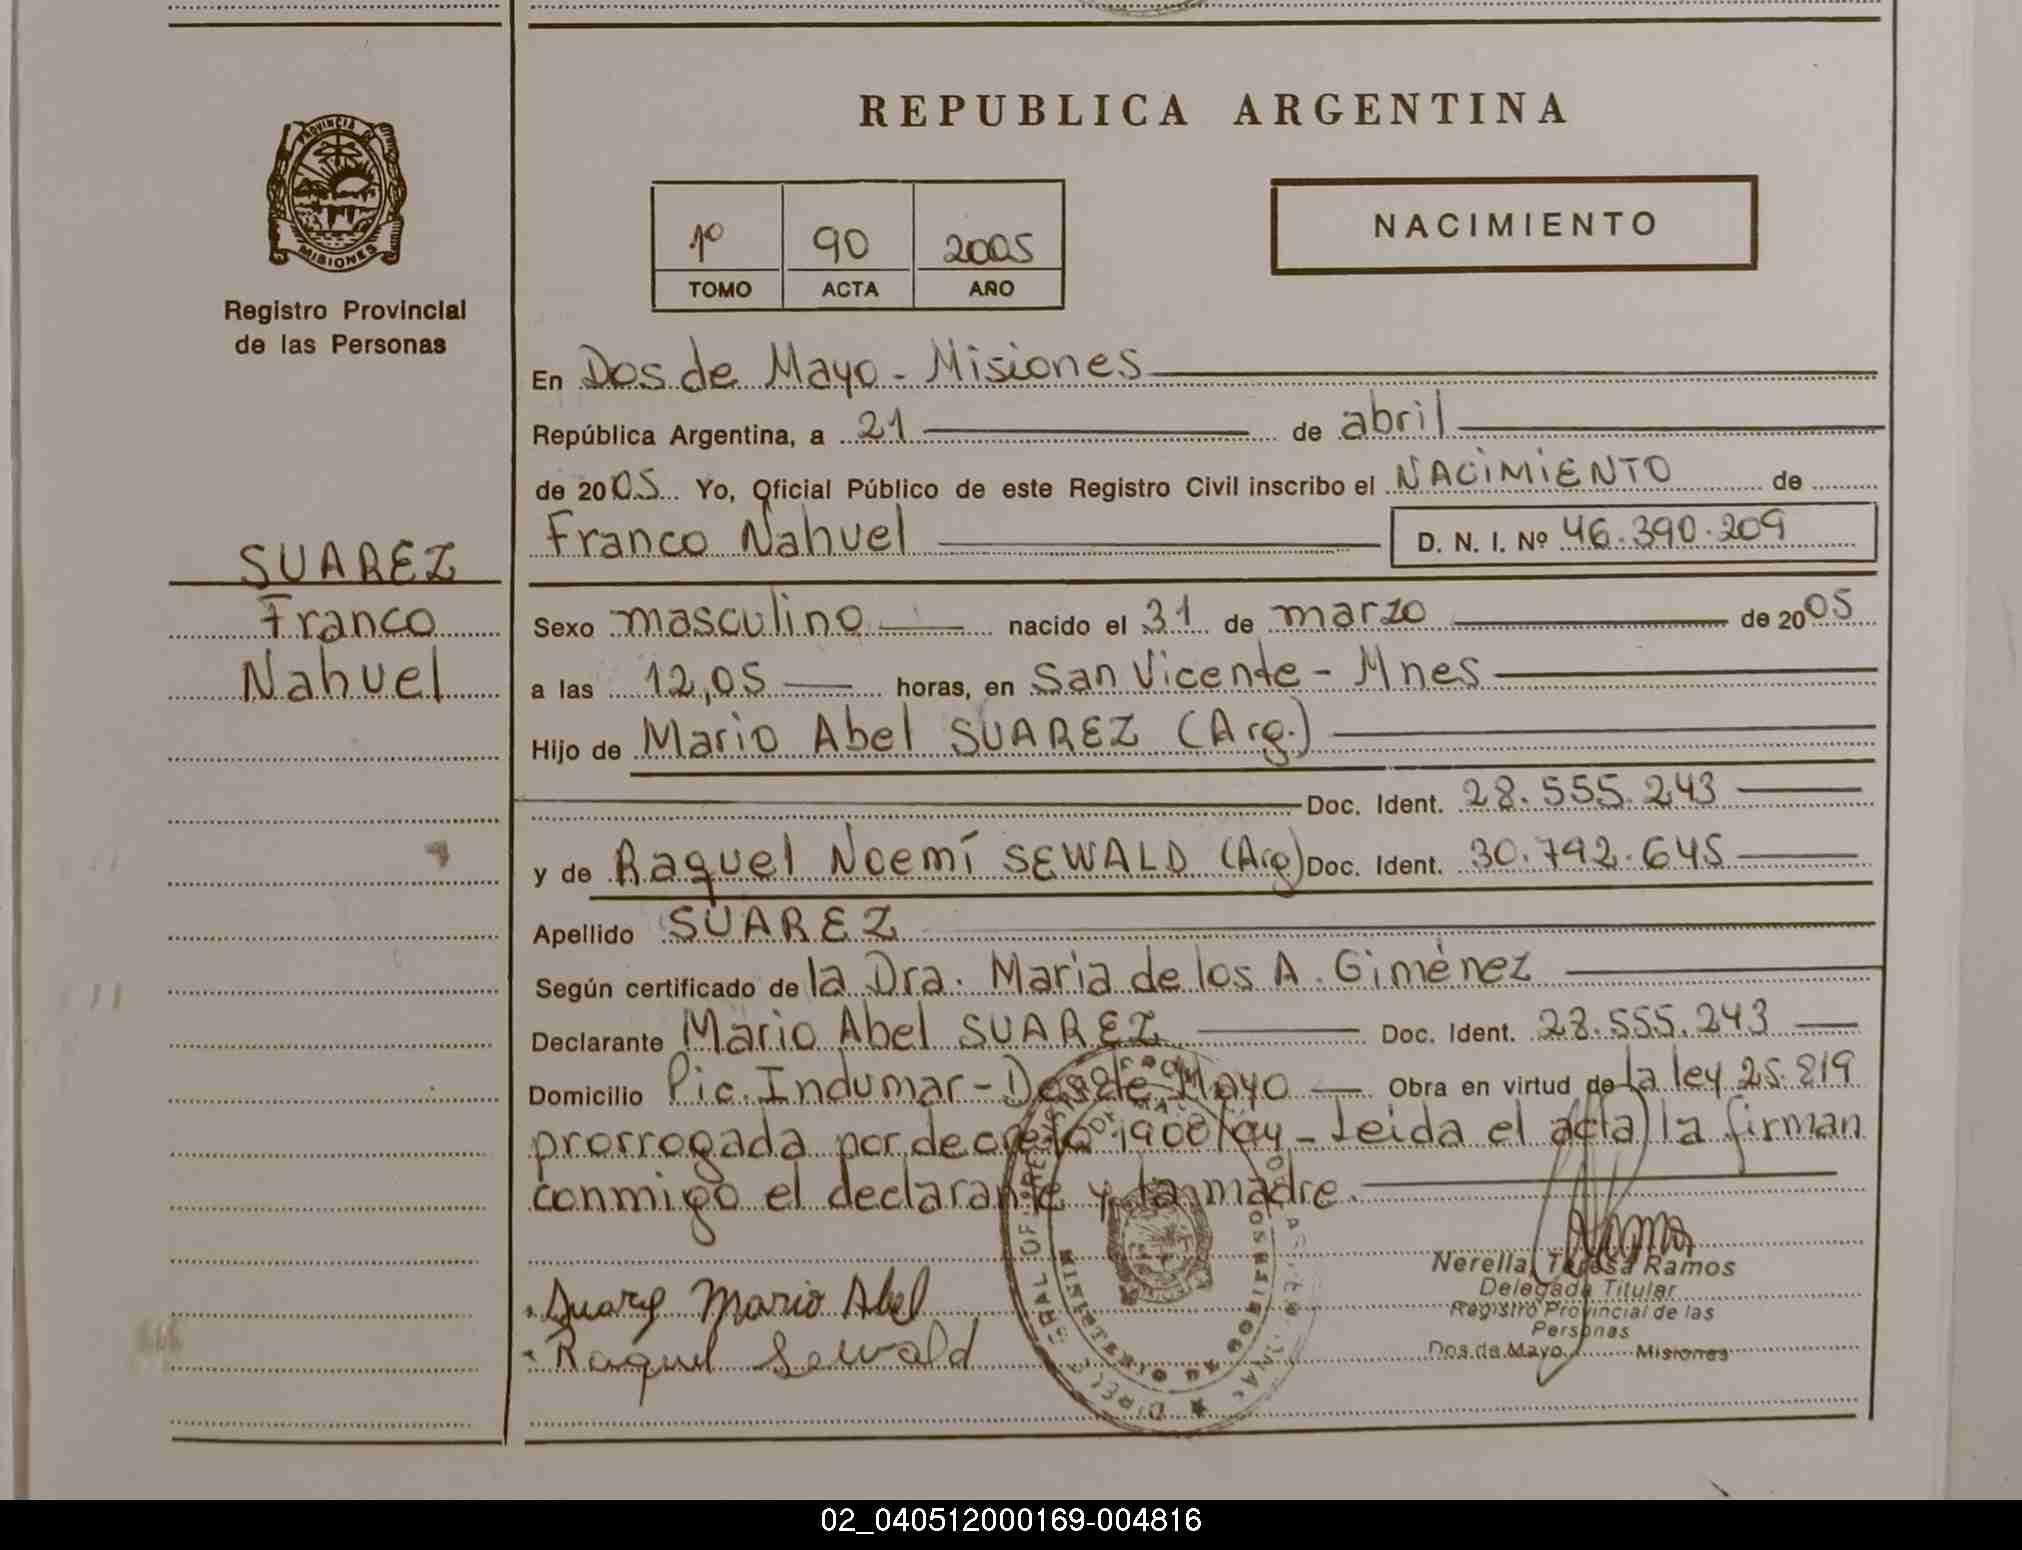 REPUBLICA ARGENTINA
PROVINCIA DE
MISIONES
Registro Provincial
de las Personas
1º 90 2005
TOMO ACTA AÑO
NACIMIENTO
SUAREZ
Franco
Nahuel
En Dos de Mayo - Misiones
República Argentina, a 21 de abril
de 2005 Yo, Oficial Público de este Registro Civil inscribo el NACIMIENTO de
Franco Nahuel D. N. I. Nº 46.390.209
Sexo masculino nacido el 31 de marzo de 2005
a las 12,05 horas, en San Vicente - Mnes
Hijo de Mario Abel SUAREZ (Arg.)
Doc. Ident. 28.555.243
y de Raquel Noemí SEWALD (Arg) Doc. Ident. 30.792.645
Apellido SUAREZ
Según certificado de la Dra. Maria de los A. Giménez
Declarante Mario Abel SUAREZ Doc. Ident. 28.555.243
Domicilio Pic. Indumar - Dos de Mayo Obra en virtud de la ley 25.819
prorrogada por decreto 1900/04 - Leida el acta la firman
conmigo el declarante y la madre.
Suarez Mario Abel
Raquel Sewald
Nerella Teresa Ramos
Delegada Titular
Registro Provincial de las
Personas
Dos de Mayo Misiones
02_040512000169-004816